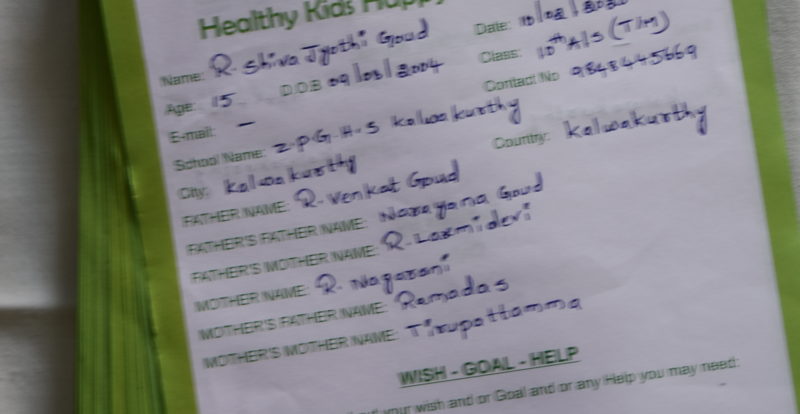 Healthy Kids Happy
Name: R. Shiva Jyothi Goud Date: 10/02/2020
Age: 15 D.O.B 09/03/2004 Class: 10th A/S (T/M)
E-mail: – Contact No 9848445669
School Name: Z.P.G.H.S Kalwakurthy
City: Kalwakurthy Country: Kalwakurthy
FATHER NAME: R. Venkat Goud
FATHER'S FATHER NAME: Narayana Goud
FATHER'S MOTHER NAME: R. Laxmidevi
MOTHER NAME: R. Nagarani
MOTHER'S FATHER NAME: Ramadas
MOTHER'S MOTHER NAME: Tirupattamma
WISH - GOAL - HELP
your wish and or Goal and or any Help you may need: